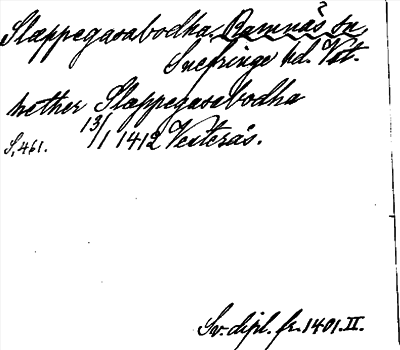 Slappegasabodha, Ramnäs sn,
Snefringe hd. Vst.
nether Slappegasabodha
13/1 1412 Vesterås.
S. 461.
Sv. dipl. fr. 1401. II.